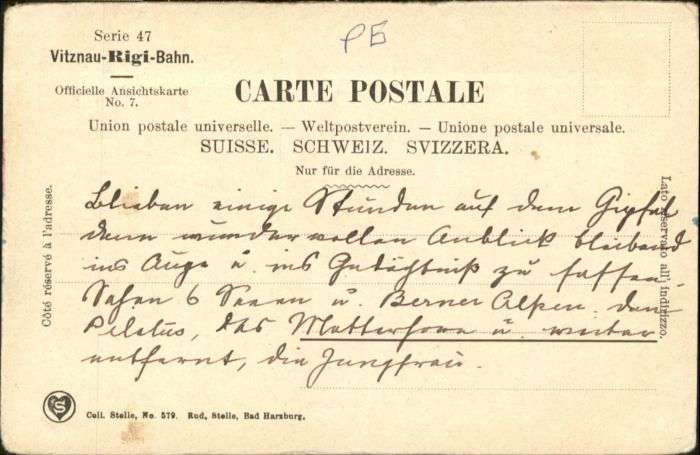 PG
Serie 47
Vitznau-Rigi-Bahn.
Officielle Ansichtskarte
No. 7.
CARTE POSTALE
Union postale universelle. — Weltpostverein. — Unione postale universale.
SUISSE. SCHWEIZ. SVIZZERA.
Nur für die Adresse.
Côté réservé à l'adresse.
Lato riservato all' indirizzo.
Blieben einige Stunden auf dem Gipfel
den wundervollen Anblick bleibend
ins Auge u. ins Gedächtniß zu fassen.
Sahen 6 Seeen u. Berner Alpen. den
Pilatus, das Matterhorn u. weiter
entfernt, die Jungfrau.
S
Coll. Stelle, No. 579. Rud. Stelle, Bad Harzburg.